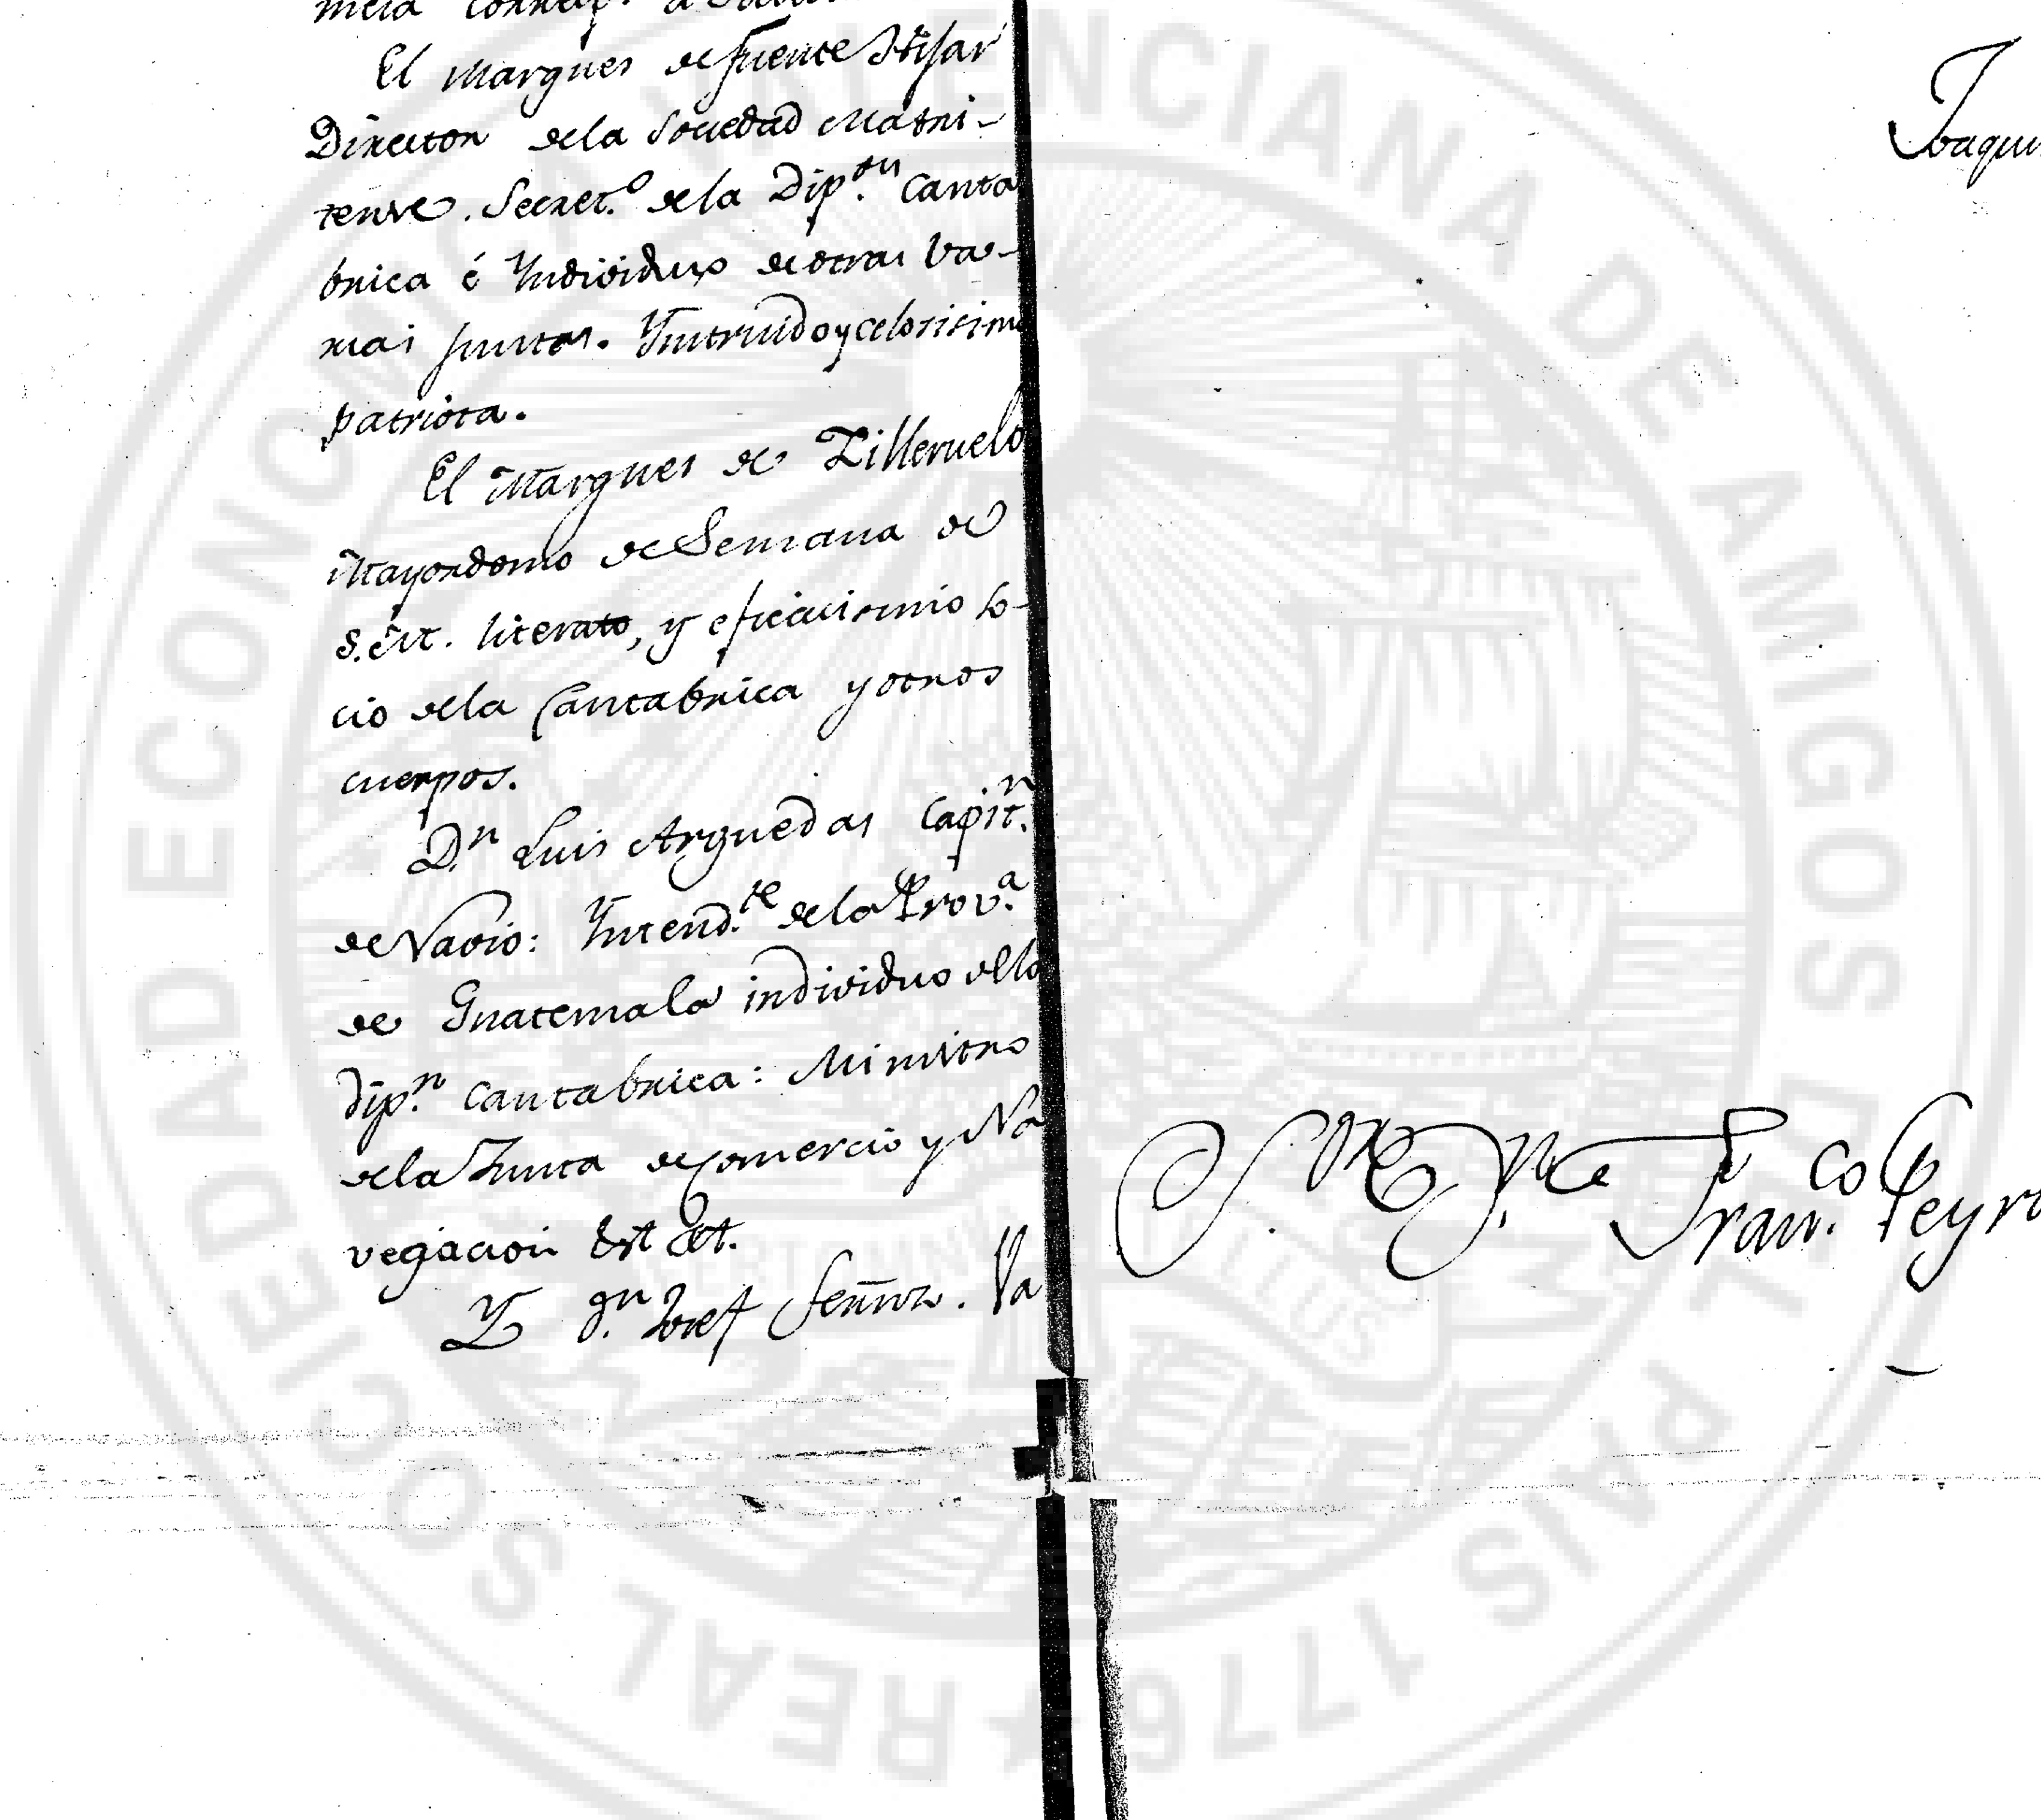 El Marques de fuente Hijar
Director dela Sociedad Matri-
tense. Secret.º dela Dip.on Canta
brica é Yndividuo de otras va-
rias juntas. Ynstruido y celosisimo
patriota.
El Marques de Zilleruelo
Mayordomo de Semana de
S.M. literato, y eficacisimo so-
cio dela Cantabrica y otros
cuerpos.
D.n Luis Arguedas Capit.n
de Navio: Yntend.te dela Prov.a
de Guatemala individuo dela
dip.n Cantabrica: Ministro
dela Junta de Comercio y Na
vegacion &t &t.
Y d.n Josef Fernnz. Va
Joaqui
S.or D.n Fran.co Peyr
REAL SOCIEDAD ECONOMICA VALENCIANA DE AMIGOS DEL PAIS 1776